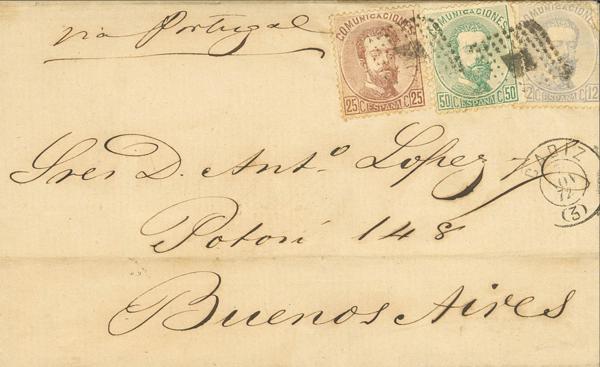 via Portugal
COMUNICACIONES
25 C. ESPAÑA C. 25
COMUNICACIONES
50 C. ESPAÑA C. 50
COMUNICACIONES
12 C. ESPAÑA C. 12
Sres D. Antº Lopez y
CADIZ
72
(3)
Potosí 148
Buenos Aires